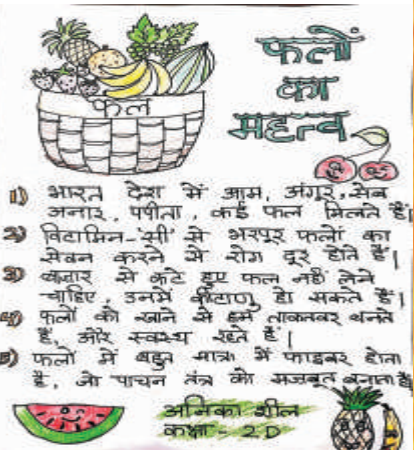 फल
फलों
का
महत्व
1) भारत देश में आम, अंगूर, सेब
अनार, पपीता, कई फल मिलते हैं।
2) विटामिन-'सी' से भरपूर फलों का
सेवन करने से रोग दूर होते हैं।
3) बाजार से कटे हुए फल नहीं लेने
चाहिए, उनमें कीटाणु हो सकते हैं।
4) फलों को खाने से हम ताकतवर बनते
हैं, और स्वस्थ रहते हैं।
5) फलों में बहुत मात्रा में फाइबर होता
है, जो पाचन तंत्र को मजबूत बनाता है
अनिका शील
कक्षा - 2D